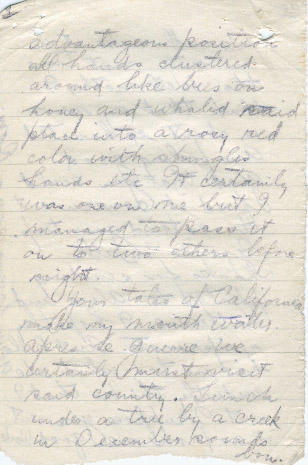 advantageous position
all hands clustered
around like bees on
honey and whaled said
place into a rosy red
color with shingles
hands etc It certainly
was one on me but I
managed to pass it
on to two others before
night.
Your tales of California
make my mouth water.
Apres le Guerre we
certainly must visit
said country. Lunch
under a tree by a creek
in December sounds
bon.